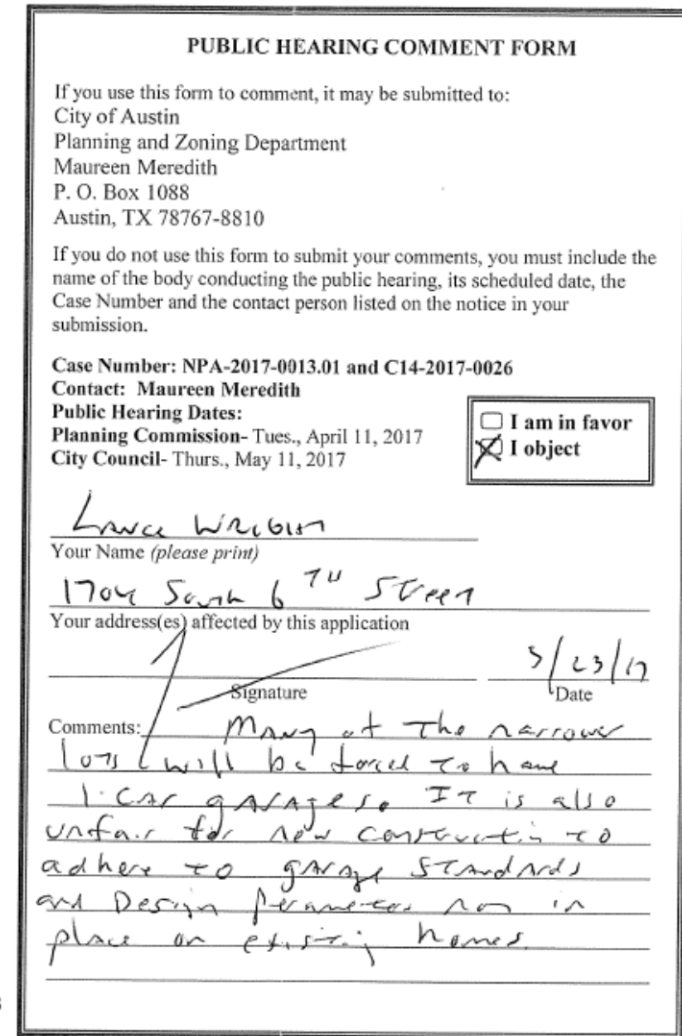 PUBLIC HEARING COMMENT FORM
If you use this form to comment, it may be submitted to:
City of Austin
Planning and Zoning Department
Maureen Meredith
P. O. Box 1088
Austin, TX 78767-8810
If you do not use this form to submit your comments, you must include the
name of the body conducting the public hearing, its scheduled date, the
Case Number and the contact person listed on the notice in your
submission.
Case Number: NPA-2017-0013.01 and C14-2017-0026
Contact: Maureen Meredith
Public Hearing Dates:
Planning Commission- Tues., April 11, 2017
City Council- Thurs., May 11, 2017
I am in favor
I object
Lance Wright
Your Name (please print)
1704 South 6TH Street
Your address(es) affected by this application
3/23/17
Signature Date
Comments: Many of The narrower
lots will be forced to have
1 car garages. It is also
unfair for new construction to
adhere to garage standards
and Design not in
place on existing homes.